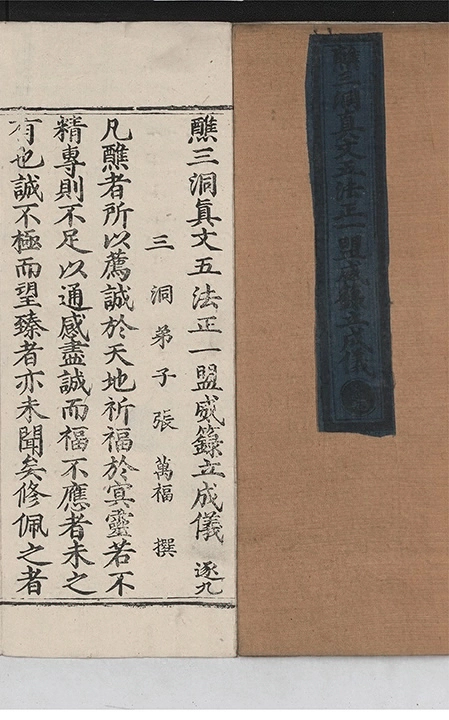 醮三洞真文五法正一盟威籙立成儀
醮三洞眞文五法正一盟威籙立成儀 逐九
三洞弟子張萬福撰
凡醮者所以薦誠於天地祈福於冥靈若不
精專則不足以通感盡誠而福不應者未之
有也誠不極而望臻者亦未聞矣修佩之者